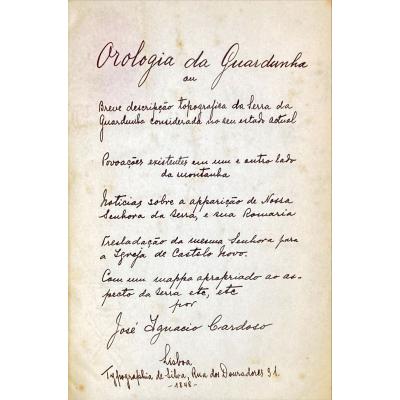 Orologia da Guardunha
ou
Breve descripção topografica da Serra da
Guardunha considerada no seu estado actual
Povoações existentes em um e outro lado
da montanha
Noticias sobre a apparição de Nossa
Senhora da Serra, e sua Romaria
Tresladação da mesma Senhora para
a Igreja de Castelo Novo.
Com um mappa apropriado ao as-
pecto da Serra etc, etc
por
José Ignacio Cardoso
Lisboa
Typographia de Silva, Rua dos Douradores 31.
-1848-